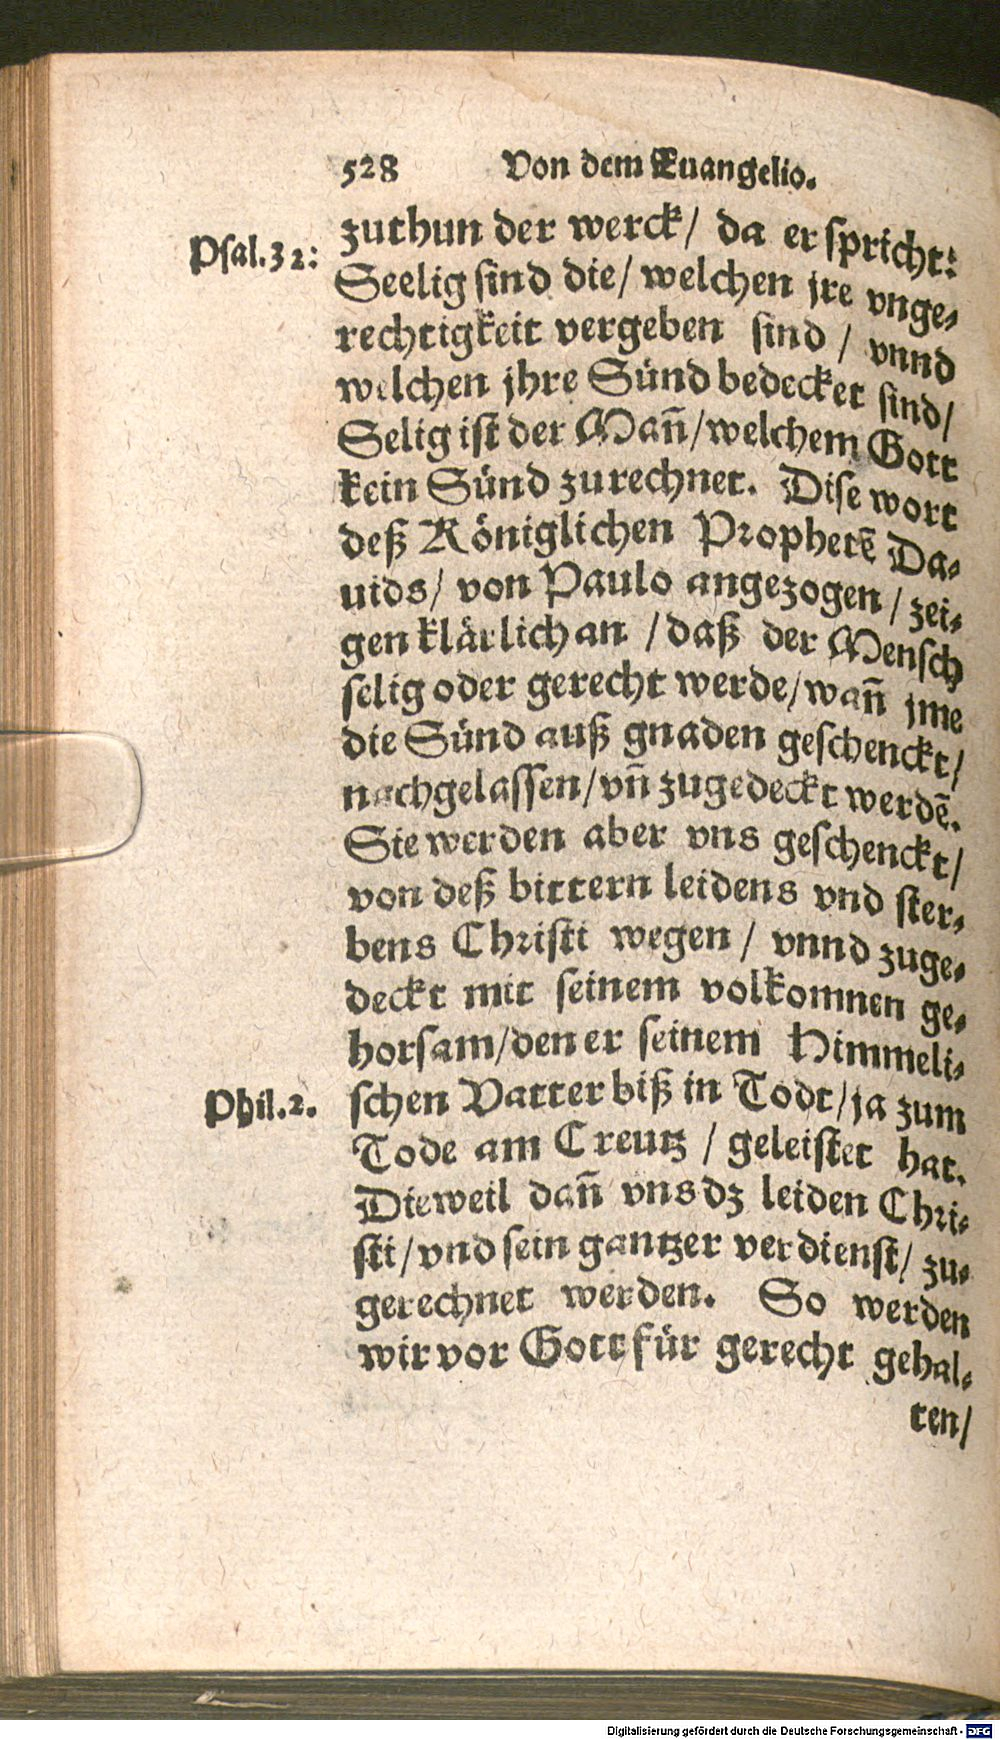 528 Von dem Euangelio.
Psal.32:
zuthun der werck/ da er spricht:
Seelig sind die/ welchen jre vnge⸗
rechtigkeit vergeben sind / vnnd
welchen jhre Sünd bedecket sind/
Selig ist der Mañ/welchem Gott
kein Sünd zurechnet. Dise wort
deß Königlichen Prophetẽ Da⸗
uids/ von Paulo angezogen / zei⸗
gen klärlich an / daß der Mensch
selig oder gerecht werde/wañ jme
die Sünd auß gnaden geschenckt/
nachgelassen/vñ zugedeckt werdẽ.
Sie werden aber vns geschenckt/
von deß bittern leidens vnd ster⸗
bens Christi wegen / vnnd zuge⸗
deckt mit seinem volkomnen ge⸗
horsam/den er seinem Himmeli⸗
Phil.2.
schen Vatter biß in Todt/ja zum
Tode am Creutz / geleistet hat.
Dieweil dañ vns dz leiden Chri⸗
sti/vnd sein gantzer verdienst/ zu⸗
gerechnet werden. So werden
wir vor Gott für gerecht gehal⸗
ten/
Digitalisierung gefördert durch die Deutsche Forschungsgemeinschaft - DFG